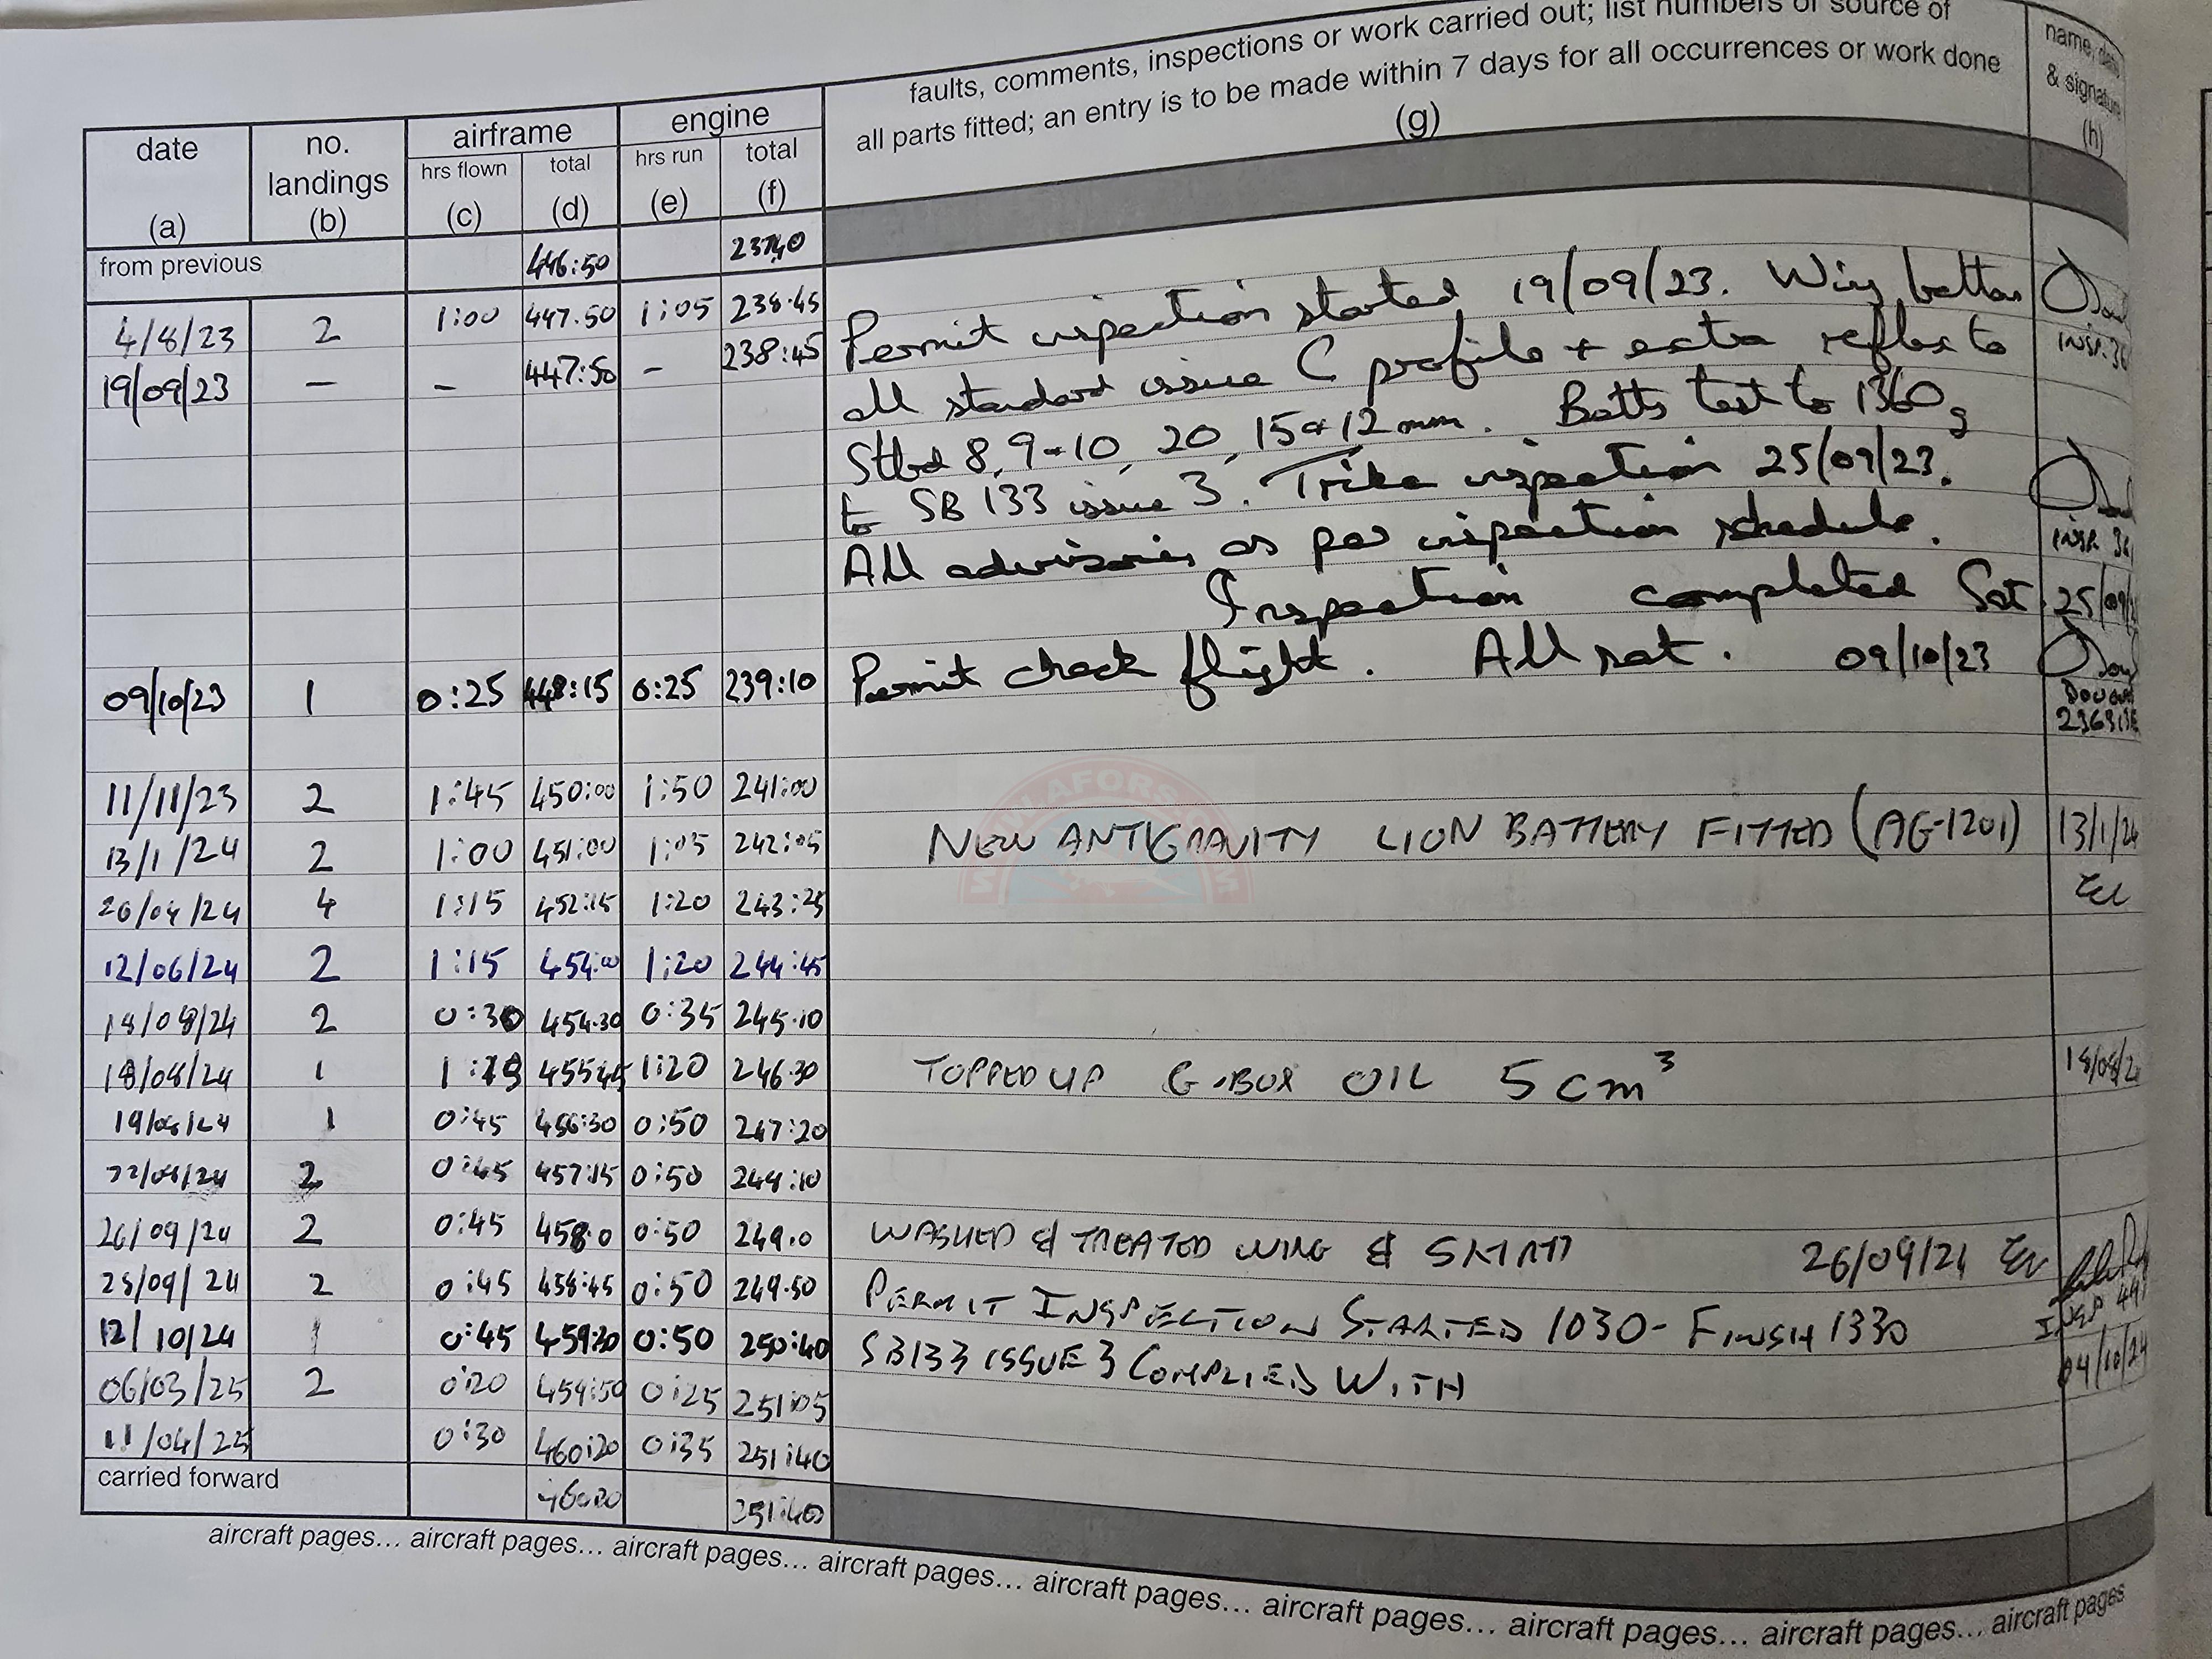 faults, comments, inspections or work carried out; list numbers or source of
all parts fitted; an entry is to be made within 7 days for all occurrences or work done
(g)
name, date
& signature
(h)
date
(a)
no.
landings
(b)
airframe
hrs flown
(c)
total
(d)
engine
hrs run
(e)
total
(f)
from previous 446:50 237:40
4/8/23 2 1:00 447.50 1:05 238.45
19/09/23 – – 447:50 – 238:45
Permit inspection started 19/09/23. Wing batten
all standard issue C profile + extra reflex to
Stbd 8, 9-10, 20, 15 & 12mm. Betts test to 1360g
to SB 133 issue 3. Trike inspection 25/09/23.
All advisories as per inspection schedule.
Inspection completed Sat 25/09/
INSP. 36
INSP. 36
09/10/23 1 0:25 448:15 0:25 239:10 Permit check flight. All sat. 09/10/23
11/11/23 2 1:45 450:00 1:50 241:00
13/1/24 2 1:00 451:00 1:05 242:05 NEW ANTIGRAVITY LION BATTERY FITTED (AG-1201) 13/1/24
20/04/24 4 1:15 452:15 1:20 243:25
12/06/24 2 1:15 454:00 1:20 244:45
18/08/24 2 0:30 454.30 0:35 245.10
18/08/24 1 455:45 1:20 246.30 TOPPED UP G.BOX OIL 5cm³ 18/08/2
19/08/24 1 0:45 456:30 0:50 247:20
22/08/24 2 0:45 457:15 0:50 248:10
26/09/24 2 0:45 458.0 0:50 249.0 WASHED & TREATED WING & 26/09/24
28/09/24 2 0:45 458:45 0:50 249.50 PERMIT INSPECTION STARTED 1030 - FINISH 1330
12/10/24 1 0:45 459:30 0:50 250:40 SB133 ISSUE 3 COMPLIED WITH
INSP 49
04/10/24
06/03/25 2 0:20 459:50 0:25 251:05
11/04/25 0:30 460:20 0:35 251:40
carried forward 460:20 251:40
aircraft pages... aircraft pages... aircraft pages... aircraft pages... aircraft pages... aircraft pages... aircraft pages... aircraft pages... aircraft pages... aircraft pages
WWW.AFORS.COM